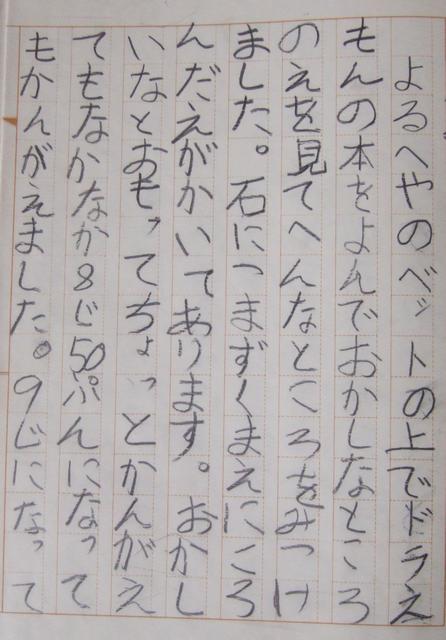 よるへやのベットの上でドラえ
もんの本をよんでおかしなところ
のえを見てへんなところをみつけ
ました。石につまずくまえにころ
んだえがかいてあります。おかし
いなとおもってちょっとかんがえ
てもなかなか8じ50ぷんになって
もかんがえました。9じになって